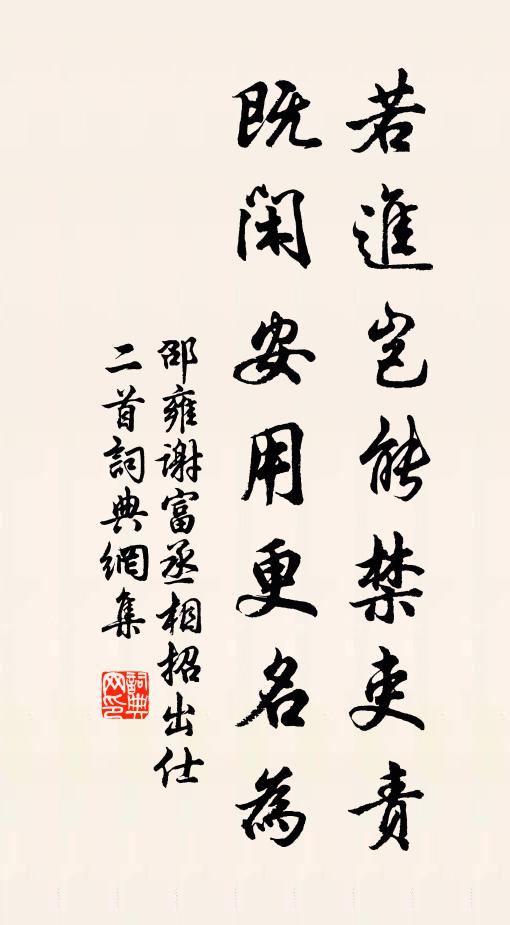 若進豈能禁吏責
既閑安用更名為
邵雍謝富丞相招出仕
二首詞典網集
詞典
网印